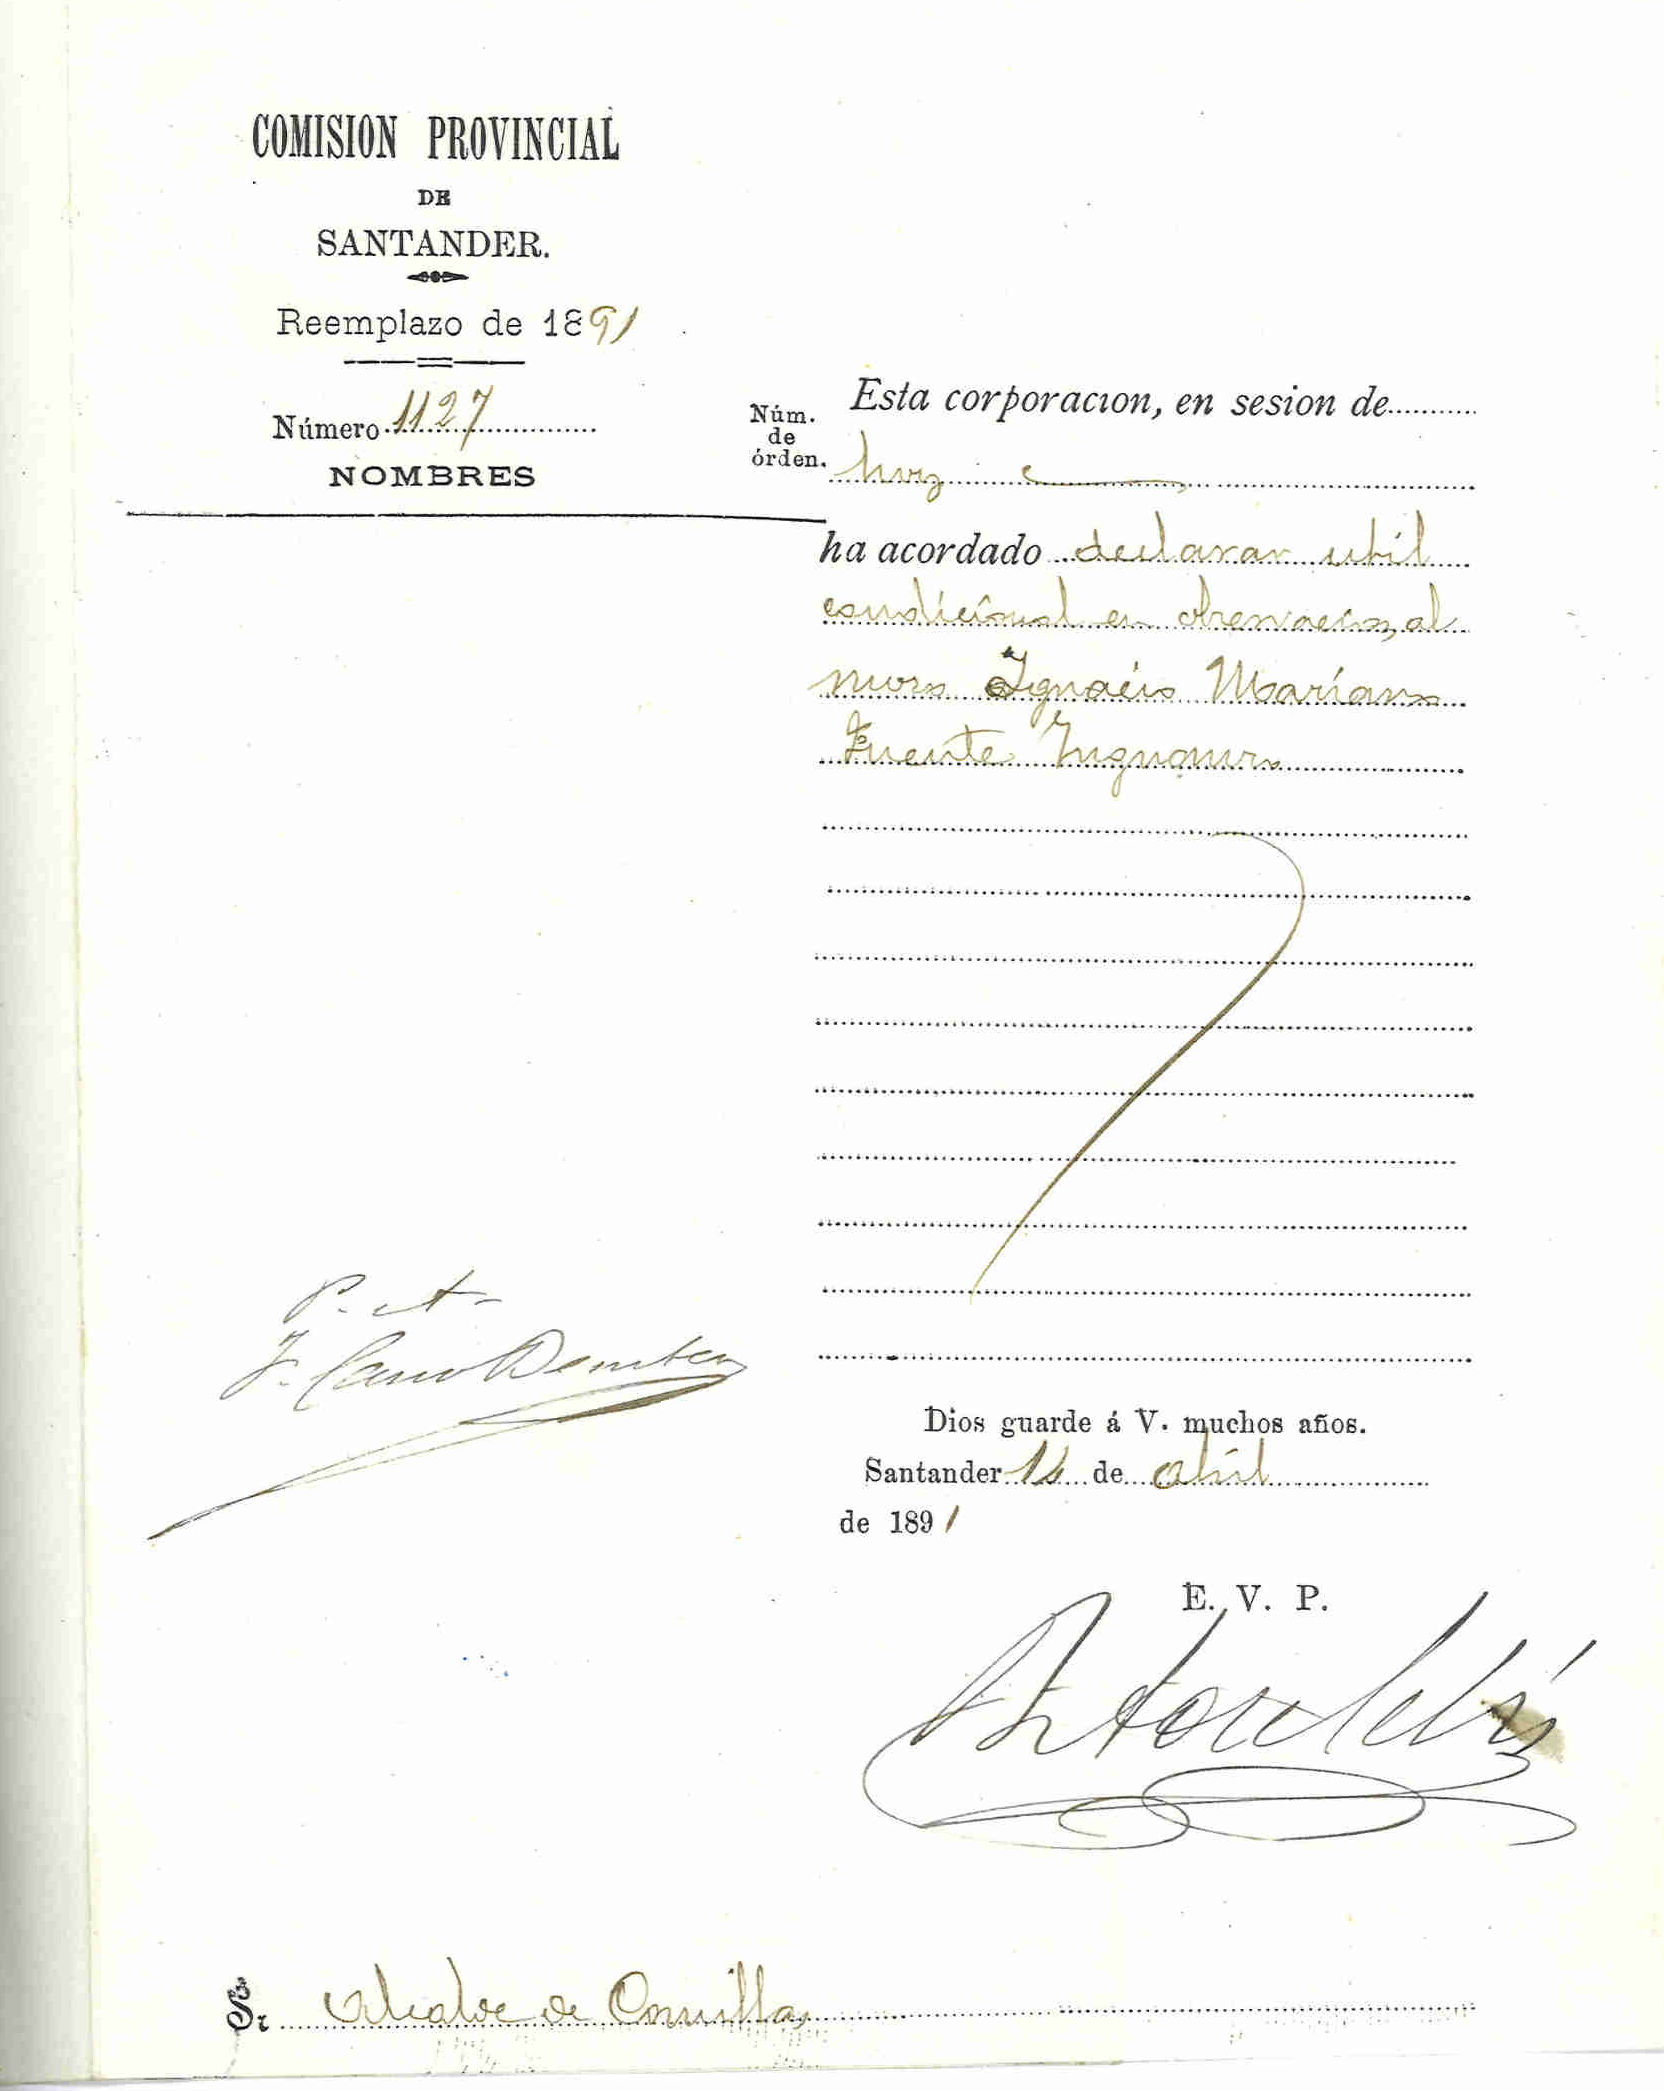 COMISION PROVINCIAL
DE
SANTANDER.
Reemplazo de 1891
Número 1127
NOMBRES
Núm.
de
órden.
Esta corporacion, en sesion de
hoy
ha acordado declarar util
condicional en observacion, al
mozo Ignacio Mariano
Fuente
P. A.
J. Cano
Dios guarde á V. muchos años.
Santander 14 de abril
de 1891
E. V. P.
Sr Alcalde de Comillas